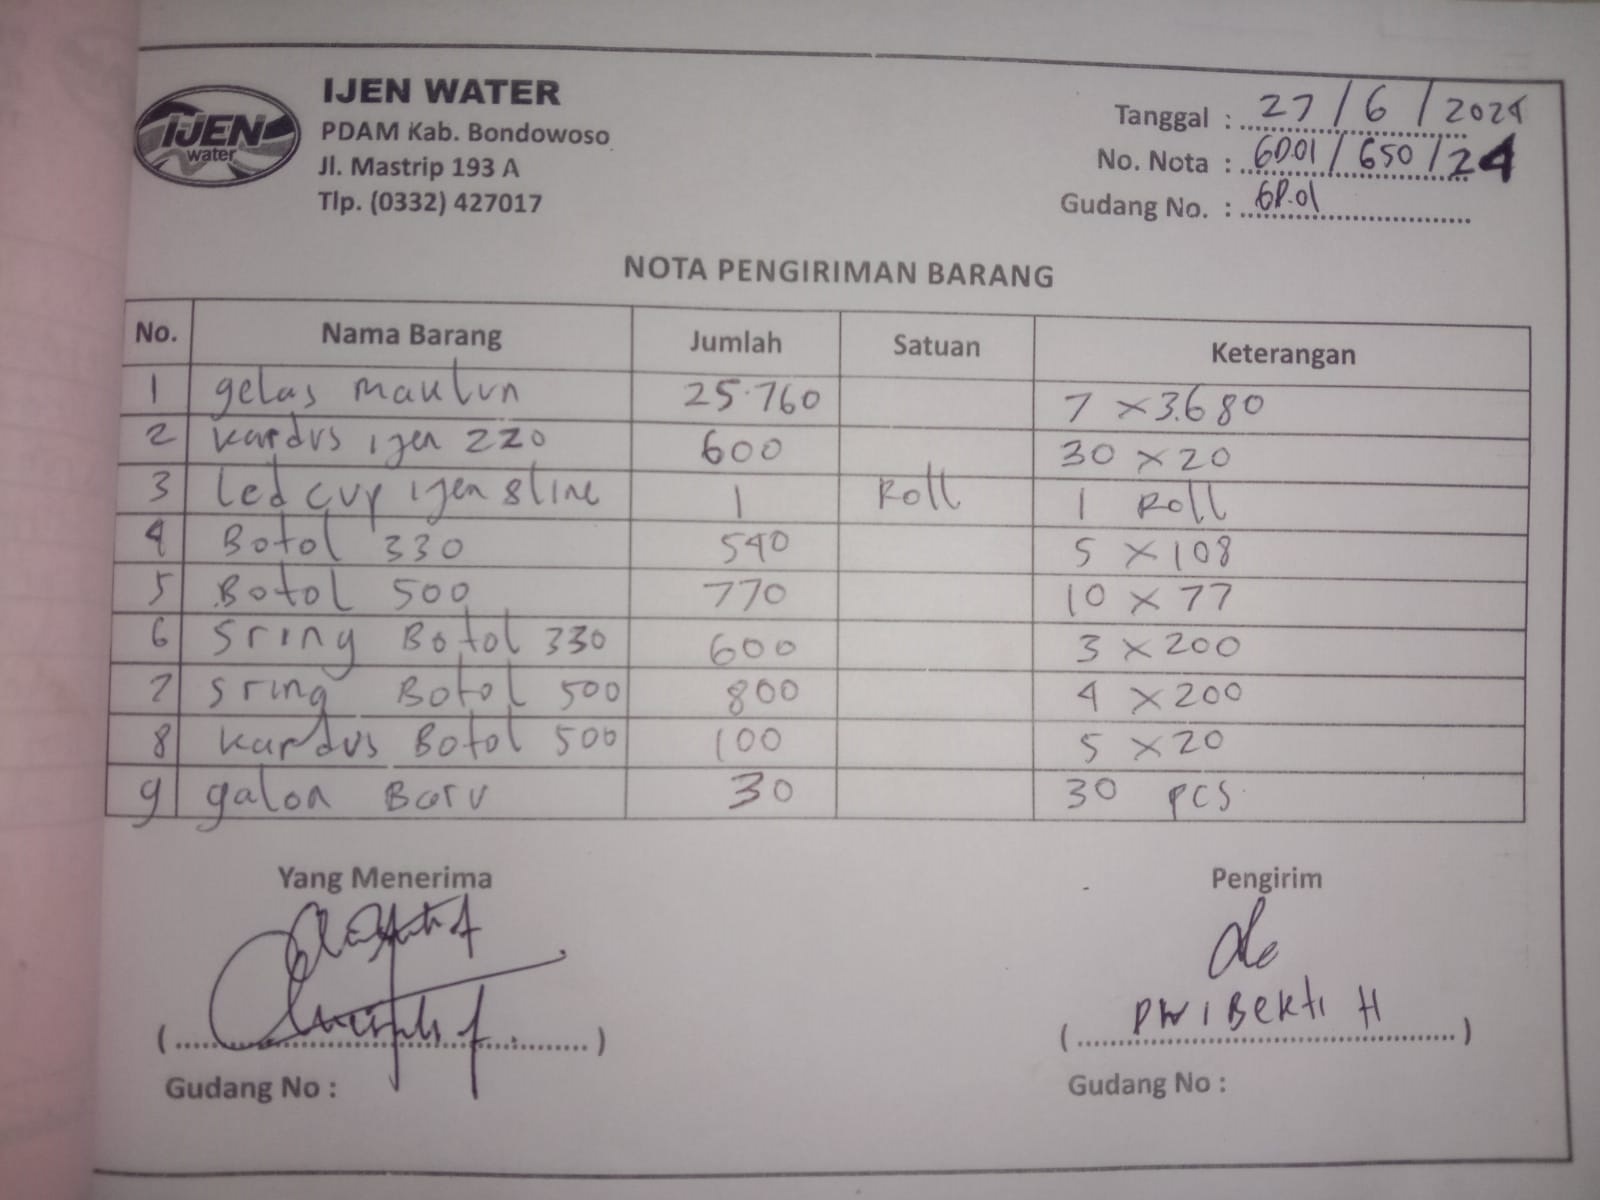 IJEN
water
IJEN WATER
PDAM Kab. Bondowoso
Jl. Mastrip 193 A
Tlp. (0332) 427017
Tanggal : 27/6/2024
No. Nota : GD.01/650/24
Gudang No. : GD.01
NOTA PENGIRIMAN BARANG
No. Nama Barang Jumlah Satuan Keterangan
1 gelas maklun 25.760 7 x 3.680
2 kardus ijen 220 600 30 x 20
3 Led cup ijen 8 line 1 Roll 1 Roll
4 Botol 330 540 5 x 108
5 Botol 500 770 10 x 77
6 Sring Botol 330 600 3 x 200
7 Sring Botol 500 800 4 x 200
8 kardus Botol 500 100 5 x 20
9 galon Baru 30 30 pcs
Yang Menerima Pengirim
DWI BEKTI H
(....................) (....................)
Gudang No : Gudang No :